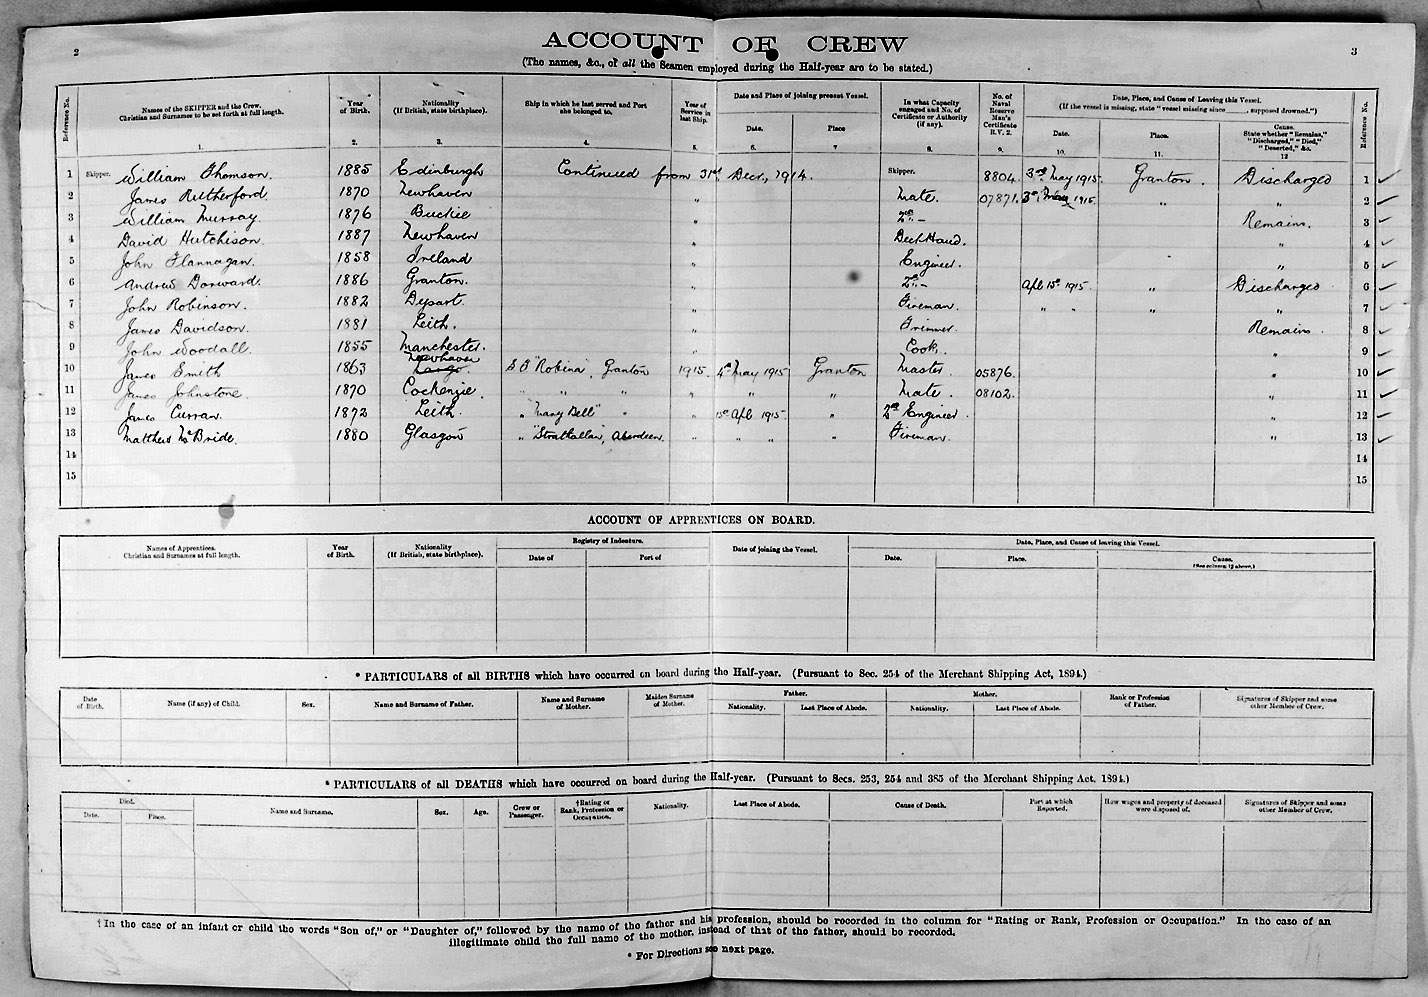 2
ACCOUNT OF CREW
3
(The names, &c., of all the Seamen employed during the Half-year are to be stated.)
Reference No. Names of the SKIPPER and the Crew. Christian and Surnames to be set forth at full length. Year of Birth. Nationality (If British, state birthplace). Ship in which he last served and Port she belonged to. Year of Service in last Ship. Date and Place of joining present Vessel. In what Capacity engaged and No. of Certificate or Authority (if any). No. of Naval Reserve Man's Certificate R.V. 2. Date, Place, and Cause of Leaving this Vessel. (If the vessel is missing, state "vessel missing since ____, supposed drowned.") Reference No.
Date. Place Date. Place. Cause. State whether "Remains," "Discharged," "Died," "Deserted," &c.
1. 2. 3. 4. 5. 6. 7 8. 9. 10. 11. 12
1 Skipper. William Thomson. 1885 Edinburgh Continued from 31st Decr., 1914. Skipper. 8804. 3rd May 1915. Granton. Discharged 1 ✓
2 James Rutherford. 1870 Newhaven " Mate. 07871. 3rd May 1915. " " 2 ✓
3 William Murray. 1876 Buckie " 2nd – Remains. 3 ✓
4 David Hutchison. 1887 Newhaven " Deck Hand. " 4 ✓
5 John Flannagan. 1858 Ireland " Engineer. " 5 ✓
6 Andrew Dorward. 1886 Granton. " 2nd – Apl 15th 1915. " Discharged 6 ✓
7 John Robinson. 1882 Dysart. " Fireman. " " " " 7 ✓
8 James Davidson. 1881 Leith. " Trimmer. Remains. 8 ✓
9 John Woodall. 1855 Manchester. " Cook. " 9 ✓
10 James Smith 1863 Newhaven Largo. S.T "Robina", Granton 1915. 4th May 1915 Granton Master 05876. " 10 ✓
11 James Johnstone. 1870 Cockenzie. " " " " " " Mate 08102. " 11 ✓
12 James Curran. 1872 Leith. " "Mary Bell" " " 15th Apl 1915. " 2nd Engineer. " 12 ✓
13 Matthew McBride. 1880 Glasgow " "Strathallan", Aberdeen. " " " " " Fireman. " 13 ✓
14 14
15 15
ACCOUNT OF APPRENTICES ON BOARD.
Names of Apprentices. Christian and Surnames at full length. Year of Birth. Nationality (If British, state birthplace). Registry of Indenture. Date of joining the Vessel. Date, Place, and Cause of leaving this Vessel.
Date of Port of Date. Place. Cause. (See column 12 above.)
* PARTICULARS of all BIRTHS which have occurred on board during the Half-year. (Pursuant to Sec. 254 of the Merchant Shipping Act, 1894.)
Date of Birth. Name (if any) of Child. Sex. Name and Surname of Father. Name and Surname of Mother. Maiden Surname of Mother. Father. Mother. Rank or Profession of Father. Signatures of Skipper and some other Member of Crew.
Nationality. Last Place of Abode. Nationality. Last Place of Abode.
* PARTICULARS of all DEATHS which have occurred on board during the Half-year. (Pursuant to Secs. 253, 254 and 385 of the Merchant Shipping Act, 1894.)
Died. Name and Surname. Sex. Age. Crew or Passenger. †Rating or Rank, Profession or Occupation. Nationality. Last Place of Abode. Cause of Death. Port at which Reported. How wages and property of deceased were disposed of. Signatures of Skipper and some other Member of Crew.
Date. Place.
† In the case of an infant or child the words "Son of," or "Daughter of," followed by the name of the father and his profession, should be recorded in the column for "Rating or Rank, Profession or Occupation." In the case of an
illegitimate child the full name of the mother, instead of that of the father, should be recorded.
* For Directions see next page.